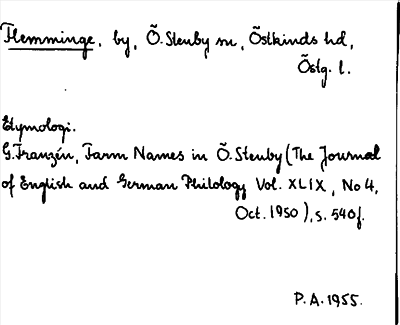 Flemminge, by, Ö. Stenby sn, Östkinds hd,
Östg. l.
Etymologi.
G. Franzén, Farm Names in Ö. Stenby (The Journal
of English and German Philology Vol. XLIX, No 4,
Oct. 1950), s. 540f.
P. A. 1955.